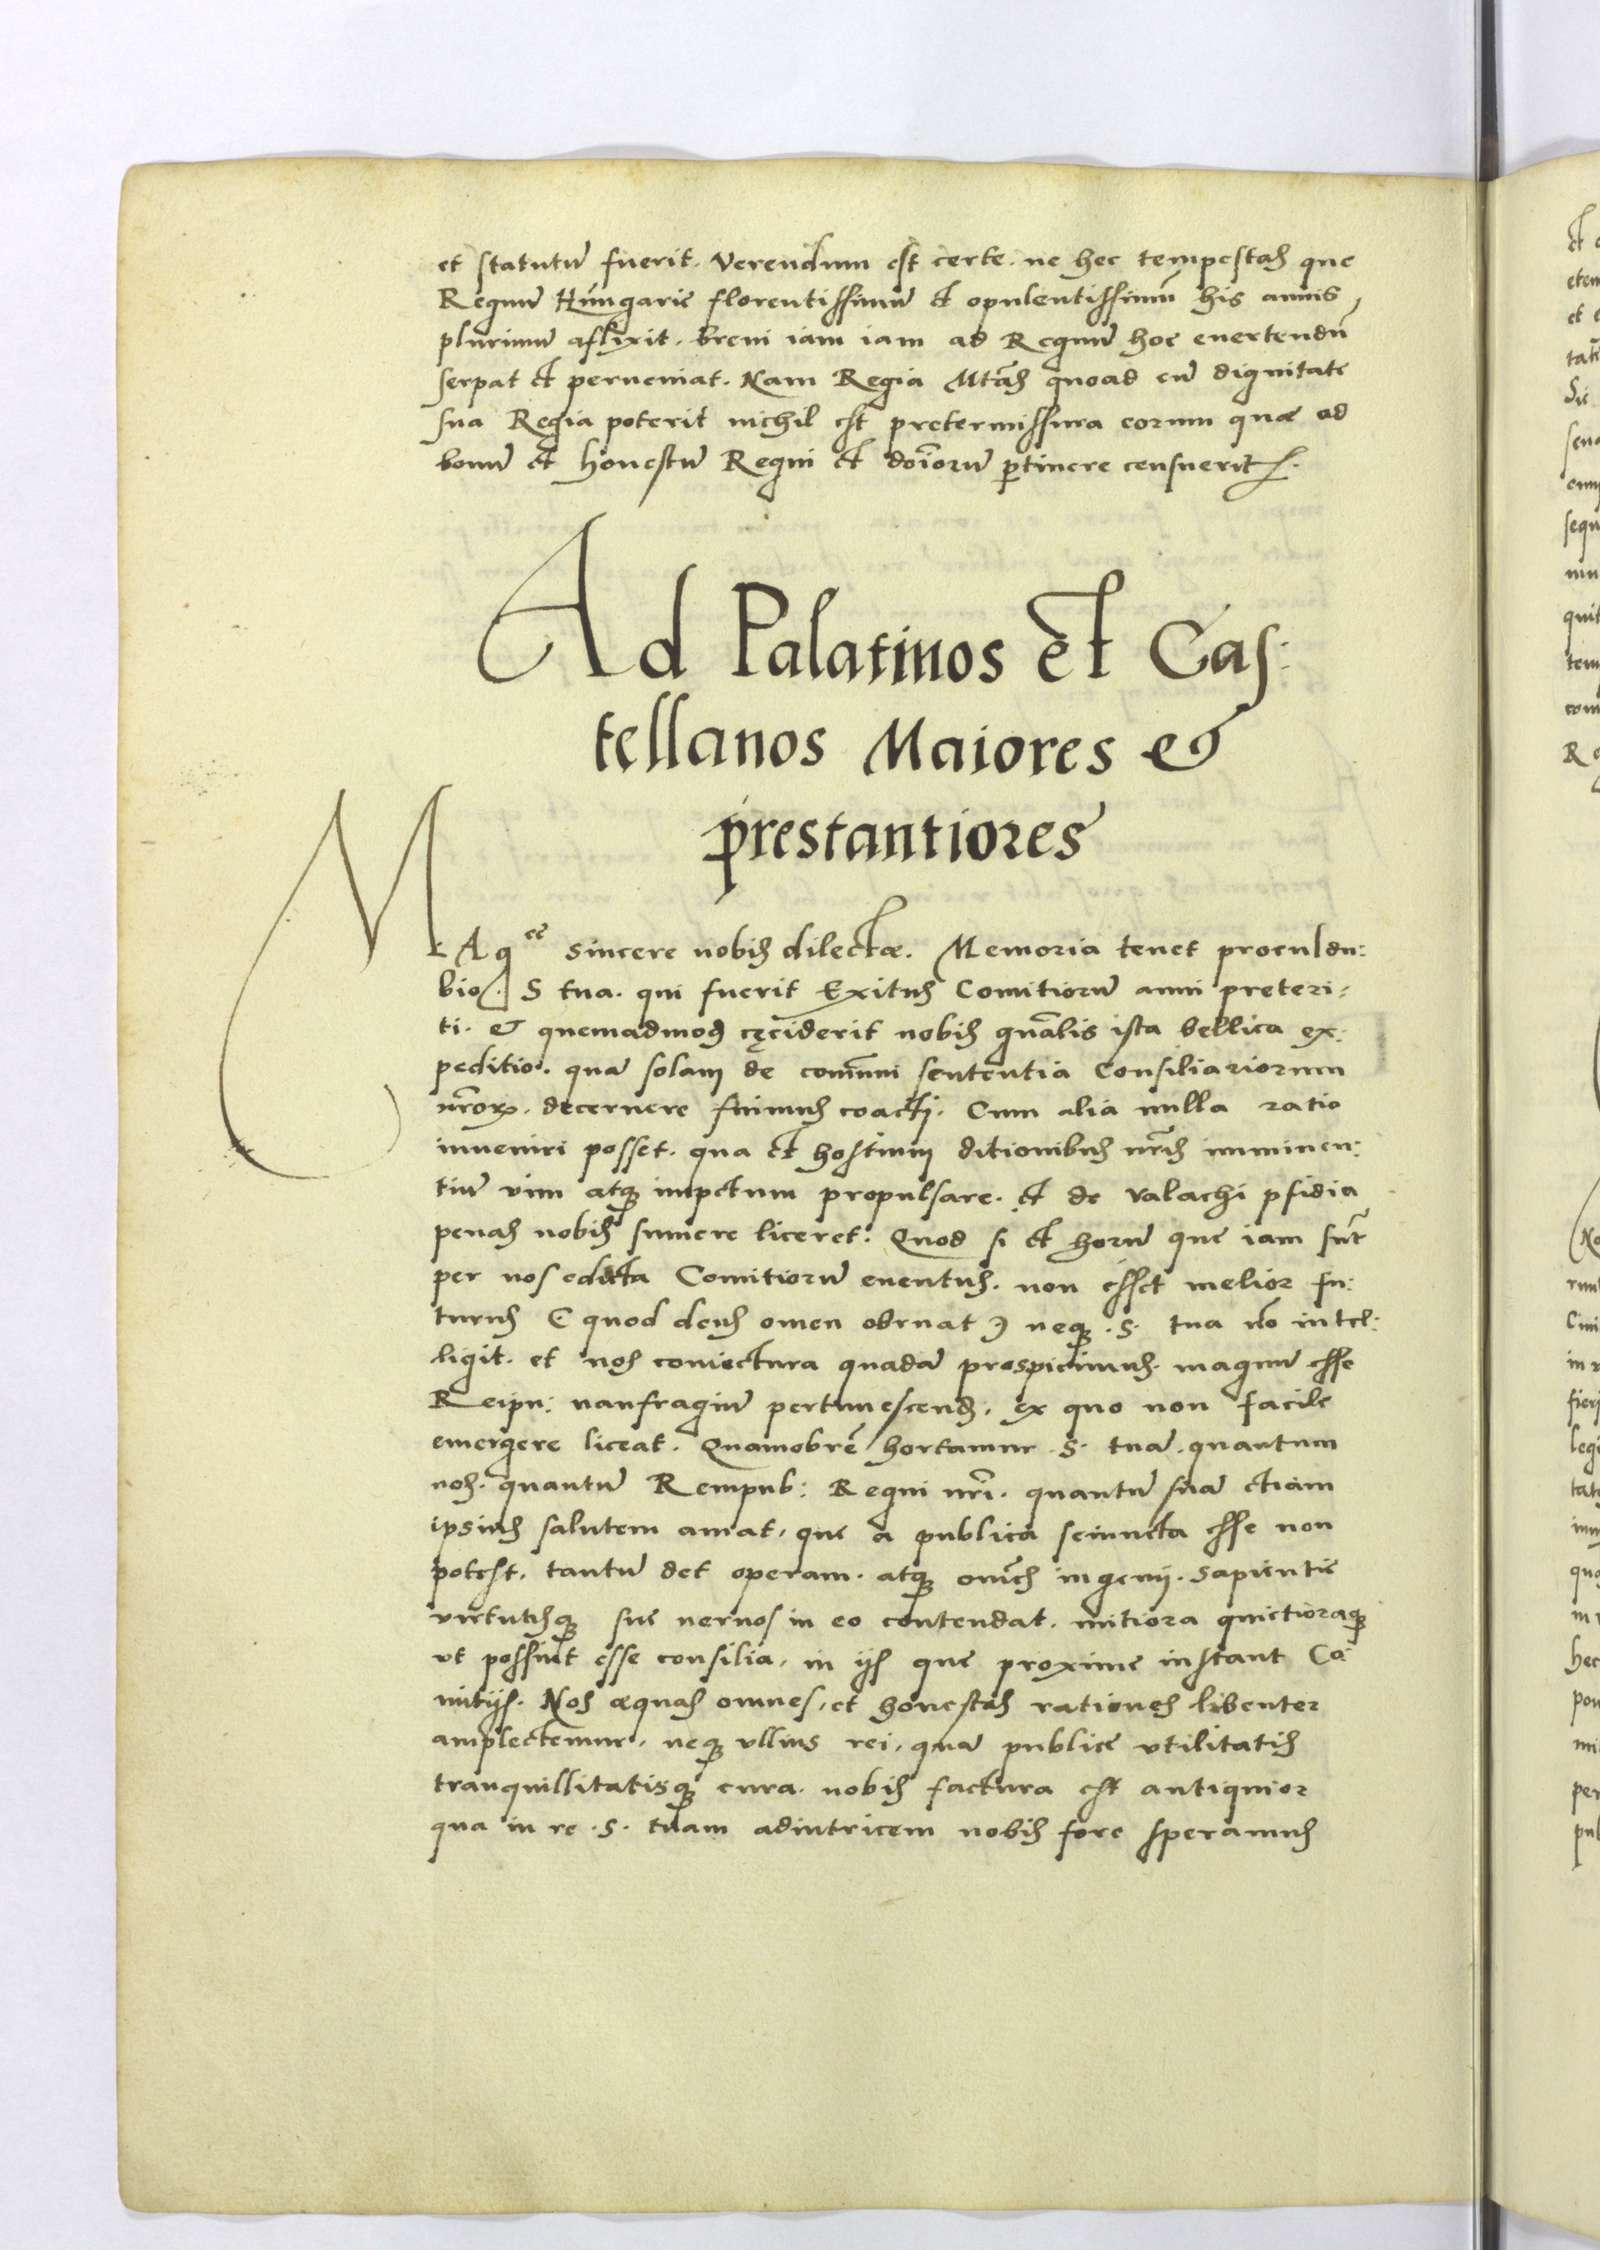 et statutū fuerit. Verendum est certe. ne hec tempestas que
Regnū Hungarie florentissimū et opulentissimū his annis
plurimū aflixit. brevi iam iam ad Regnū hoc evertendū
serpat et perveniat. Nam Regia Mtas quoad cū dignitate
sua Regia poterit nichil est pretermissura eorum quæ ad
bonū et honestū Regni et doīorū ptinere censuerit.
Ad Palatinos et Cas:
tellanos Maiores &
prestantiores
MAgce sincere nobis dilectæ. Memoria tenet proculdu:
bio. S tua. qui fuerit Exitus Comitiorū anni preteri:
ti. & quemadmod cęciderit nobis gnālis ista bellica ex:
peditio. quā solam de comūni sententia Consiliariorum
nrōrꝝ. decernere fuimus coacti. Cum alia nulla ratio
inveniri posset. qua et hostium ditionibus nrīs imminen:
tiū vim atqꝫ impetum propulsare. et de Valachi pfidia
penas nobis sumere liceret. Quod si et horū que iam sūt
per nos edicta Comitiorū eventus. non esset melior fu:
turus ( quod deus omen obruat ) neqꝫ . S. tua nō intel:
ligit. et nos coniectura quadā prospicimus. magnū esse
Reipu: naufragiū pertimescend. ex quo non facile
emergere liceat. Quamobrē hortamur . S. tuā. quantum
nos. quantū Rempub: Regni nrī. quantū suā etiam
ipsius salutem amat. que a publica seiuncta esse non
potest. tantū det operam. atqꝫ om̄es ingenij. sapientie
virtutisqꝫ sue nervos in eo contendat. mitiora quietioraqꝫ
ut possint esse consilia. in ijs que proxime instant Co
mitijs. Nos æquas omnes, et honestas rationes libenter
amplectemur. neqꝫ ullius rei, quā publice utilitatis
tranquillitatisqꝫ cura. nobis factura est antiquior
qua in re . S. tuam adiutricem nobis fore speramus